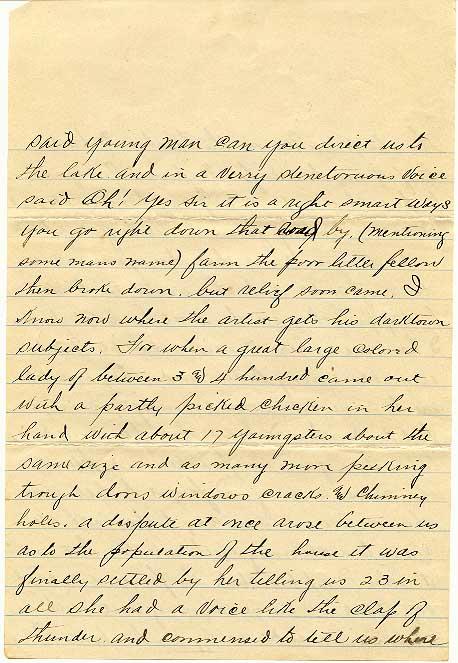 said young man can you direct us to
the lake and in a verry stenctoruous voice
said Oh! Yes Sir it is a right smart ways
you go right down that road by, (mentioning
some mans name) farm the poor littel fellow
then broke down. but relief soon came. I
know now where the artist gets his darktown
subjects. For when a great large colored
lady of between 3 & 4 hundred came out
with a partly picked chicken in her
hand with about 17 youngsters about the
same size and as many more peeking
trough doors windows cracks. & Chimney
holes. a dispute at once arose between us
as to the population of the house it was
finally settled by her telling us 23 in
all she had a voice like the clap of
thunder. and commensed to tell us where